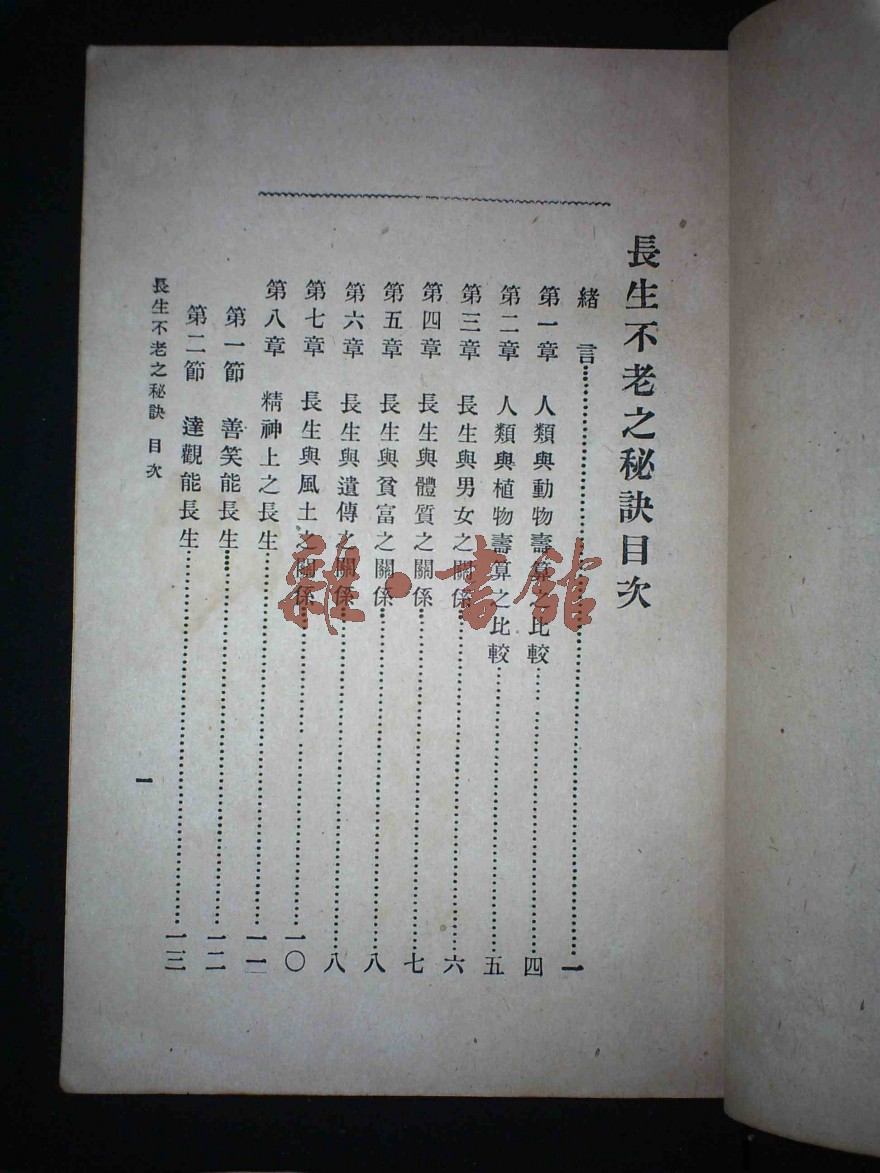 長生不老之秘訣目次
緒言……一
第一章 人類與動物壽算之比較……四
第二章 人類與植物壽算之比較……五
第三章 長生與男女之關係……六
第四章 長生與體質之關係……七
第五章 長生與貧富之關係……八
第六章 長生與遺傳之關係……八
第七章 長生與風土之關係……一〇
第八章 精神上之長生……一一
第一節 善笑能長生……一二
第二節 達觀能長生……一三
長生不老之秘訣 目次
一
雜·書館